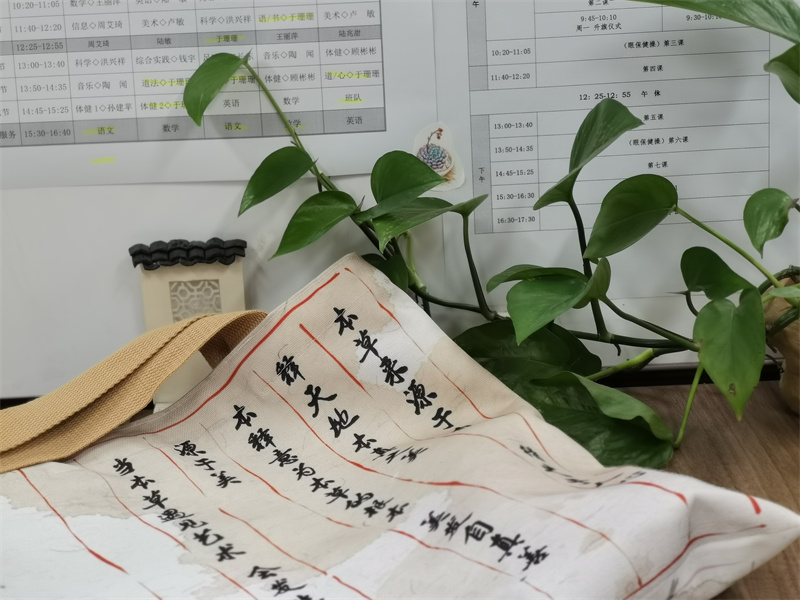 10:20-11:05
数学◇王丽萍
美术◇卢 敏
11:40-12:20
信息◇周艾琦
美术◇卢敏
科学◇洪兴祥
语/书◇于珊珊
美术◇卢 敏
12:25-12:55
周艾琦
陆敏
于珊珊
王丽萍
陆兆甜
13:00-13:40
科学◇洪兴祥
综合实践◇钱宇
音乐◇陶 闻
体健◇顾彬彬
13:50-14:35
音乐◇陶 闻
道法◇于珊珊
体健◇顾彬彬
道/心◇于珊珊
14:45-15:25
体健1◇孙建平
英语
数学
班队
服务
15:30-16:40
语文
数学
语文
英语
午
第二课
9:45-10:10
周一 升旗仪式
9:30-10:10
10:20-11:05
(眼保健操)第三课
11:40-12:20
第四课
12:25-12:55 午 休
下午
13:00-13:40
第五课
13:50-14:35
(眼保健操)第六课
14:45-15:25
第七课
15:30-16:30
16:30-17:30
本草来源于
天地
释
本
释意为本草的根本
美发自真善
源于美
当本草遇见艺术
会发